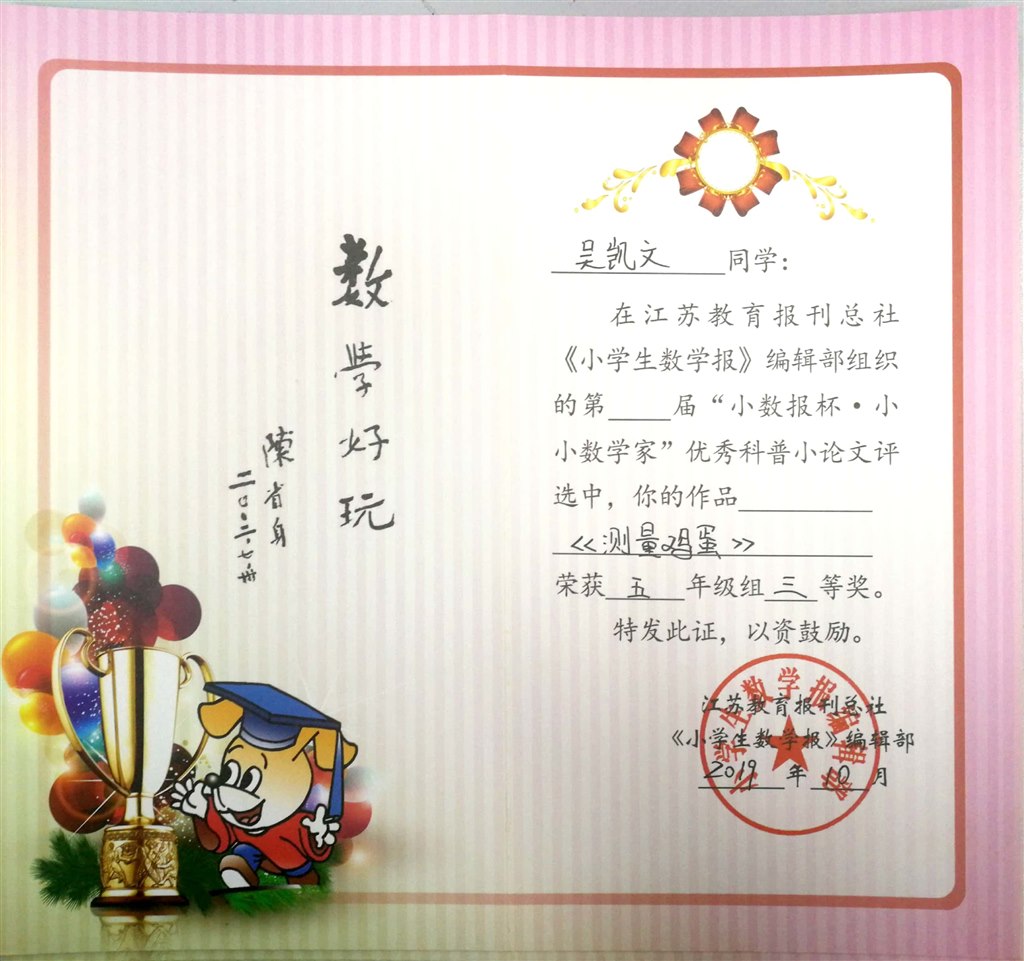 数学好玩
陳省身
二〇〇三.七.
吴凯文同学：
在江苏教育报刊总社
《小学生数学报》编辑部组织
的第____届“小数报杯·小
小数学家”优秀科普小论文评
选中，你的作品
《测量鸡蛋》
荣获五年级组三等奖。
特发此证，以资鼓励。
江苏教育报刊总社
《小学生数学报》编辑部
2019年10月
小学生数学报编辑部